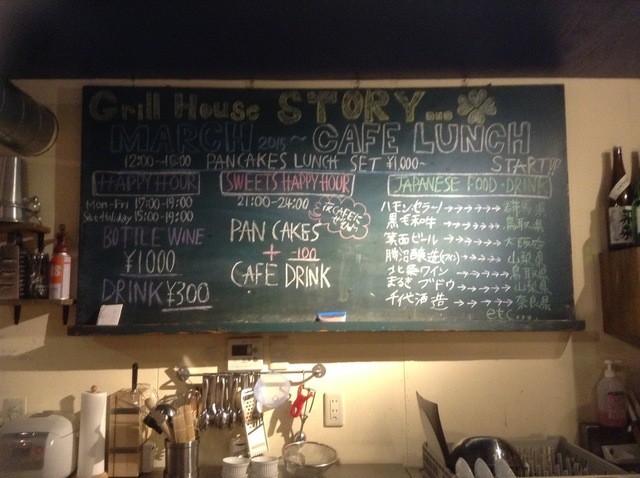 Grill House STORY...
MARCH 2015~ CAFE LUNCH
12:00~15:00 PANCAKES LUNCH SET ¥1,000~ START!!
HAPPY HOUR
Mon-Fri 17:00-19:00
Sat・Holiday 15:00-19:00
BOTTLE WINE
¥1000
DRINK ¥300
SWEETS HAPPY HOUR
21:00-24:00
夜CAFEに
PAN CAKES
+ 100
CAFE DRINK
JAPANESE FOOD・DRINK
ハモンセラーノ→→→→→→群馬県
黒毛和牛 →→→→→→鳥取県
箕面ビール→→→→→→大阪府
勝沼醸造(ワイン)→→→→→→山梨県
北条ワイン→→→→→→鳥取県
まるきブドウ→→→→→→山梨県
千代酒造→→→→→→奈良県
etc...